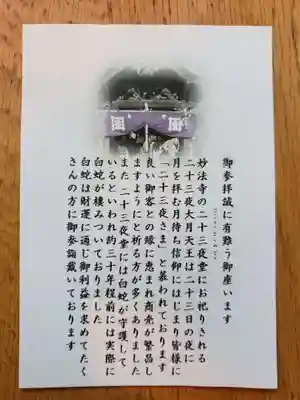 御参拝誠に有難う御座います
妙法寺の二十三夜堂にお祀りされる
二十三夜大月天王は二十三日の夜に
月を拝む月待ち信仰にはじまり皆様に
「二十三夜さま」と慕われております
良い御客との縁に恵まれ商売が繁昌し
ますようにと祈る方が多くありました
また二十三夜堂には白蛇が守護して
いるといわれ約三十年程前には実際に
白蛇が棲みついておりました
白蛇は財運に通じ御利益を求めてたく
さんの方に御参詣戴いております